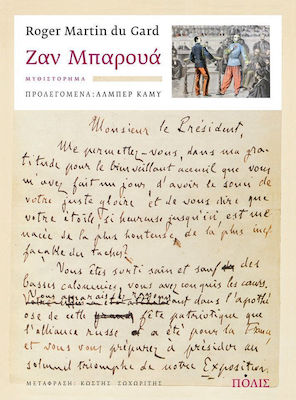 Roger Martin du Gard
Ζαν Μπαρουά
ΜΥΘΙΣΤΟΡΗΜΑ
ΠΡΟΛΕΓΟΜΕΝΑ: ΑΛΜΠΕΡ ΚΑΜΥ
Monsieur le Président,
Me permettez-vous, dans ma gra-
titude pour le bienveillant accueil que vous
m'avez fait un jour, d'avoir le souci de
votre juste gloire et de vous dire que
votre étoile, si heureuse jusqu'ici, est me-
nacée de la plus honteuse, de la plus inef-
façable des taches?
Vous êtes sorti sain et sauf des
basses calomnies, vous avez conquis les cœurs.
Vous apparaissez rayonnant dans l'apothé-
ose de cette fête patriotique que
l'alliance russe a été pour la France
et vous vous préparez à présider au
solennel triomphe de notre Exposition
ΜΕΤΑΦΡΑΣΗ: ΚΩΣΤΗΣ ΣΩΧΩΡΙΤΗΣ
ΠΟΛΙΣ